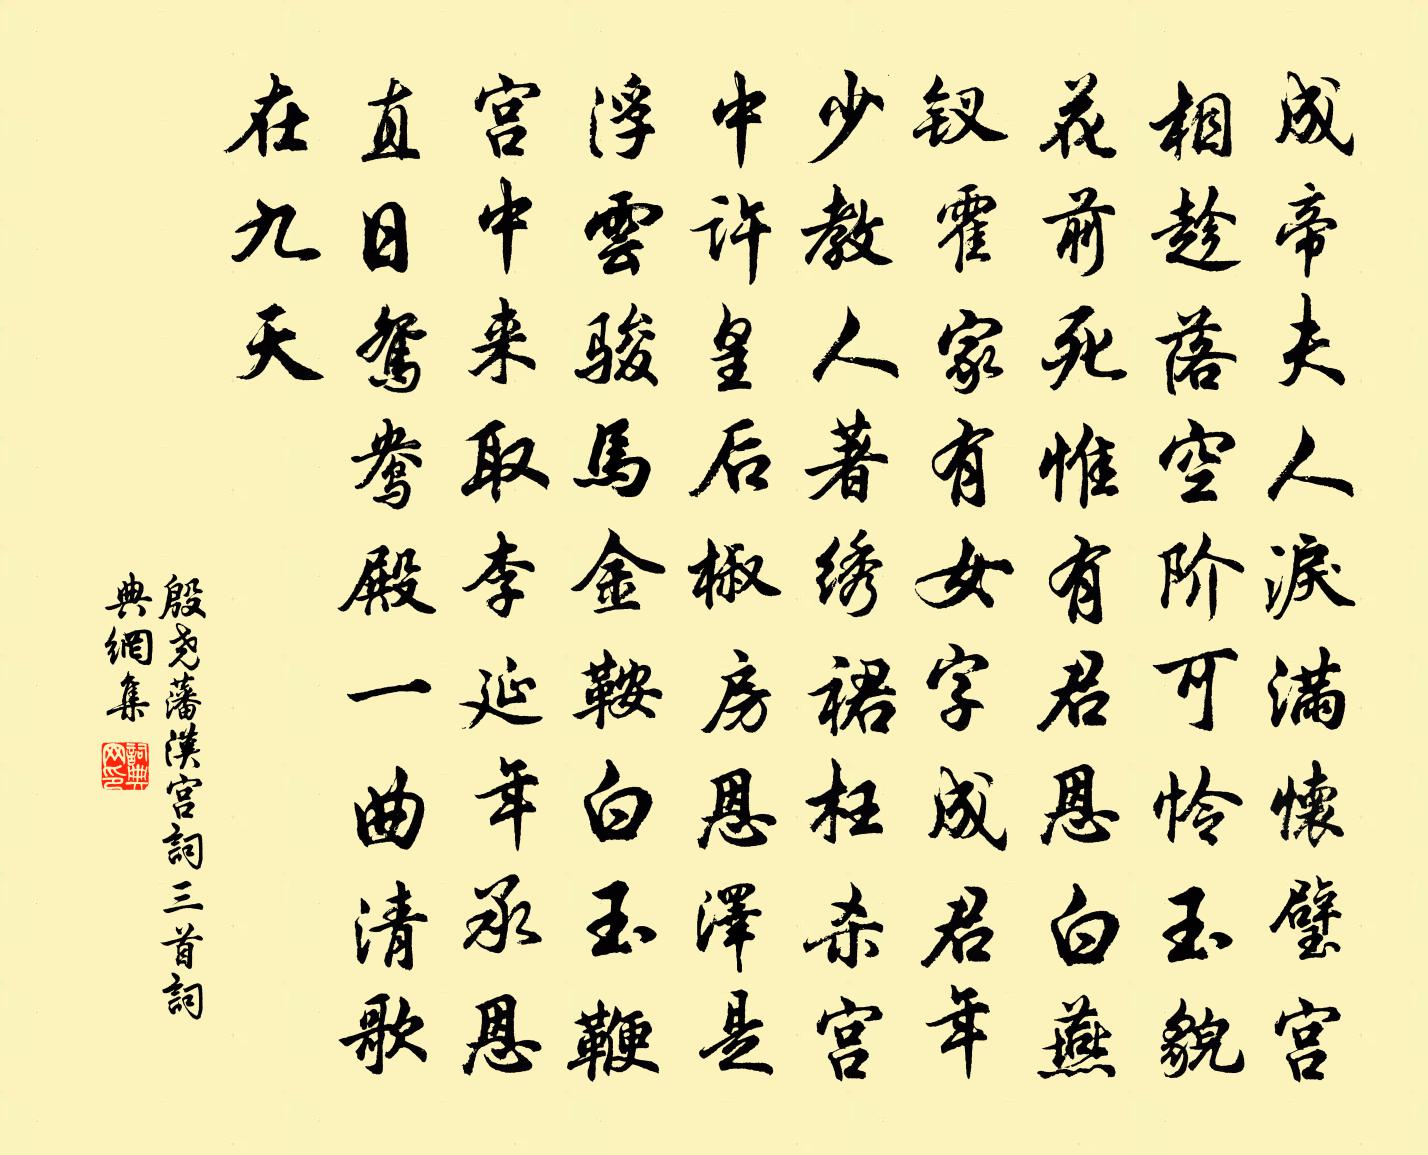 成帝夫人淚滿懷璧宮
相趁落空阶可怜玉貌
花前死惟有君恩白燕
钗霍家有女字成君年
少教人著绣裙枉杀宮
中许皇后椒房恩澤是
浮雲骏馬金鞍白玉鞭
宮中来取李延年承恩
直日鸳鸯殿一曲清歌
在九天
殷尧藩漢宮詞三首詞
典網集
詞典
网印